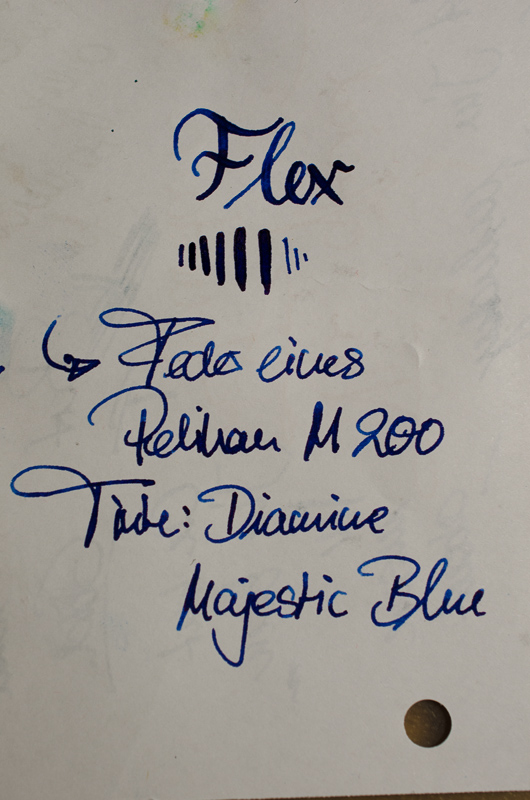 Flex
Feder eines
Pelikan M 200
Tinte: Diamine
Majestic Blue